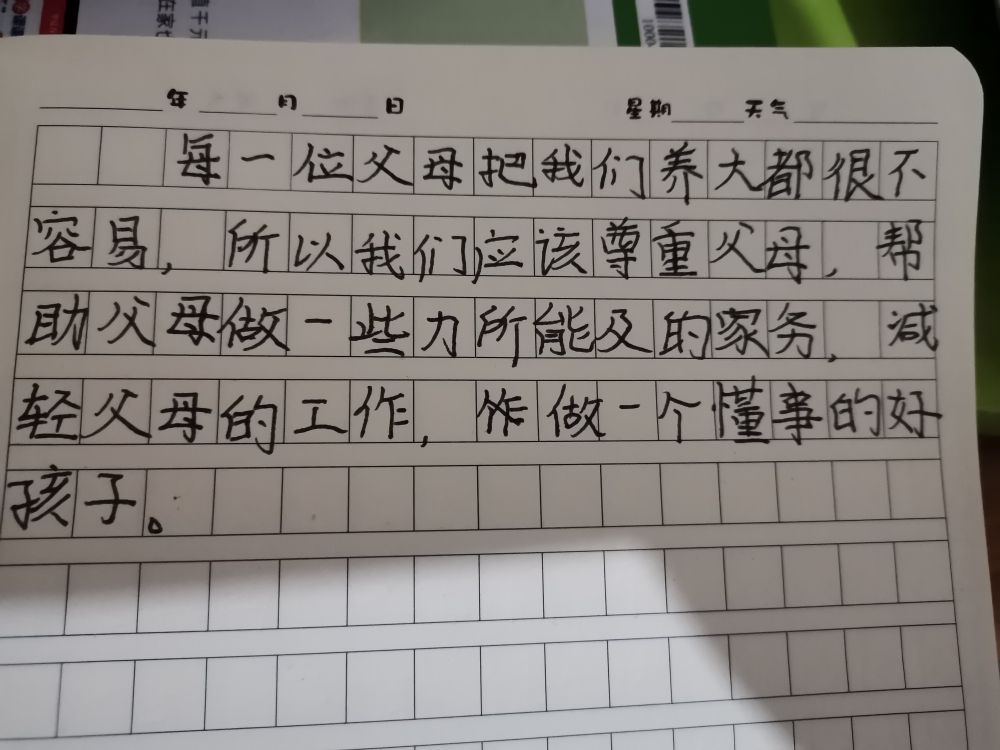 1000
年 月 日 星期 天气
每一位父母把我们养大都很不
容易，所以我们应该尊重父母，帮
助父母做一些力所能及的家务，减
轻父母的工作，做一个懂事的好
孩子。